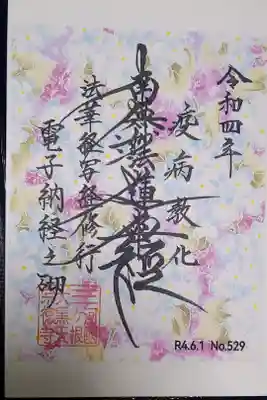 令和四年
疫病教化
南無妙法蓮華経
法華経写経修行
電子納経之御
R4.6.1 No.529